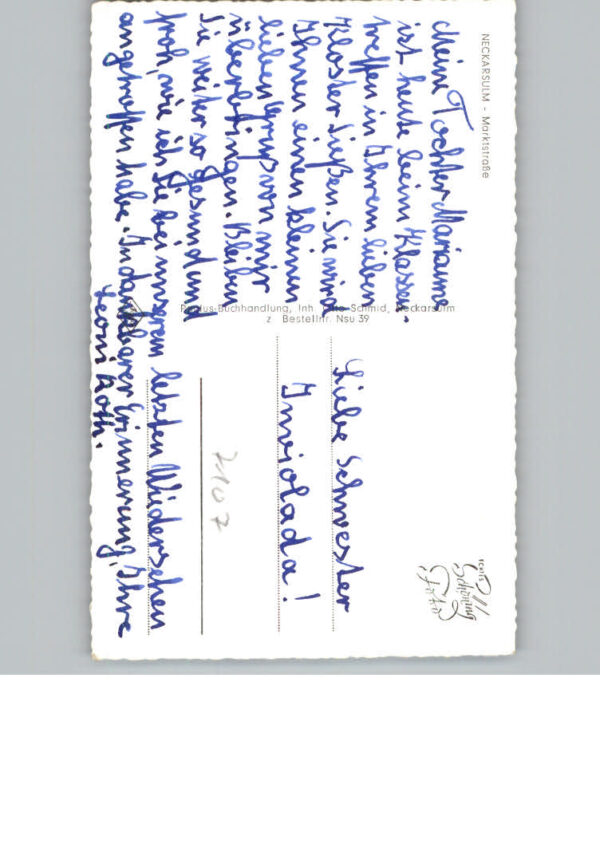 NECKARSULM - Marktstraße
Meine Tochter Marianne
ist heute beim Klassen-
treffen in Ihrem lieben
Kloster Sießen. Sie wird
Ihnen einen kleinen
lieben Gruß von mir
überbringen. Bleiben
Sie weiter so gesund und
froh, wie ich Sie bei unserem letzten Wiedersehen
angetroffen habe. In dankbarer Erinnerung, Ihre
Leoni Roth.
Liebe Schwester
Inviolada!
-Buchhandlung, Inh. Schmid, Neckarsulm
z Bestellnr. Nsu 39
7107
echte
Schöning
Foto